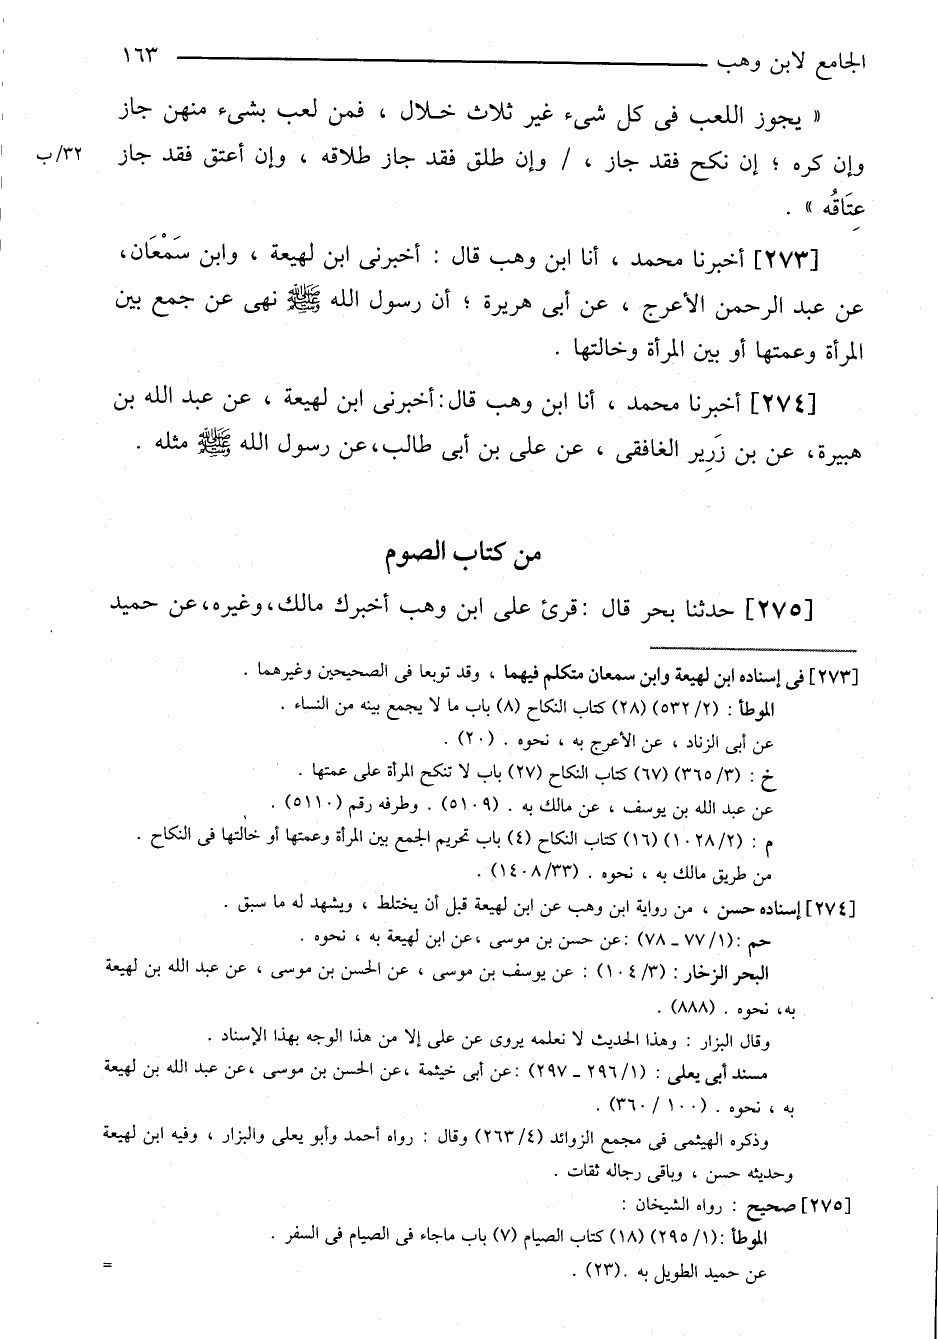 الجامع لابن وهب ١٦٣
« يجوز اللعب فى كل شىء غير ثلاث خلال ، فمن لعب بشىء منهن جاز
وإن كره ؛ إن نكح فقد جاز ، / وإن طلق فقد جاز طلاقه ، وإن أعتق فقد جاز ٣٢/ب
عِتَاقُه » .
[٢٧٣] أخبرنا محمد ، أنا ابن وهب قال : أخبرنى ابن لهيعة ، وابن سَمْعَان،
عن عبد الرحمن الأعرج ، عن أبى هريرة ؛ أن رسول الله ﷺ نهى عن جمع بين
المرأة وعمتها أو بين المرأة وخالتها .
[٢٧٤] أخبرنا محمد ، أنا ابن وهب قال:أخبرنى ابن لهيعة ، عن عبد الله بن
هبيرة، عن بن زَرِير الغافقى ، عن على بن أبى طالب،عن رسول الله ﷺ مثله .
من كتاب الصوم
[٢٧٥] حدثنا بحر قال :قرئ على ابن وهب أخبرك مالك،وغيره،عن حميد
[٢٧٣] فى إسناده ابن لهيعة وابن سمعان متكلم فيهما ، وقد توبعا فى الصحيحين وغيرهما .
الموطأ : (٢/ ٥٣٢) (٢٨) كتاب النكاح (٨) باب ما لا يجمع بينه من النساء .
عن أبى الزناد ، عن الأعرج به ، نحوه . (٢٠) .
خ : (٣/ ٣٦٥) (٦٧) كتاب النكاح (٢٧) باب لا تنكح المرأة على عمتها .
عن عبد الله بن يوسف ، عن مالك به . (٥١٠٩) . وطرفه رقم (٥١١٠) .
م : (٢/ ١٠٢٨) (١٦) كتاب النكاح (٤) باب تحريم الجمع بين المرأة وعمتها أو خالتها فى النكاح .
من طريق مالك به ، نحوه . (٣٣/ ١٤٠٨) .
[٢٧٤] إسناده حسن ، من رواية ابن وهب عن ابن لهيعة قبل أن يختلط ، ويشهد له ما سبق .
حم :(١/ ٧٧ ـ ٧٨) :عن حسن بن موسى ،عن ابن لهيعة به ، نحوه .
البحر الزخار : (٣/ ١٠٤) : عن يوسف بن موسى ، عن الحسن بن موسى ، عن عبد الله بن لهيعة
به، نحوه . (٨٨٨) .
وقال البزار : وهذا الحديث لا نعلمه يروى عن على إلا من هذا الوجه بهذا الإسناد .
مسند أبى يعلى : (١/ ٢٩٦ ـ ٢٩٧) :عن أبى خيثمة ،عن الحسن بن موسى ،عن عبد الله بن لهيعة
به ، نحوه . (١٠٠ / ٣٦٠) .
وذكره الهيثمى فى مجمع الزوائد (٤/ ٢٦٣) وقال : رواه أحمد وأبو يعلى والبزار ، وفيه ابن لهيعة
وحديثه حسن ، وباقى رجاله ثقات .
[٢٧٥] صحيح : رواه الشيخان :
الموطأ :(١/ ٢٩٥) (١٨) كتاب الصيام (٧) باب ماجاء فى الصيام فى السفر .
عن حميد الطويل به .(٢٣) . =